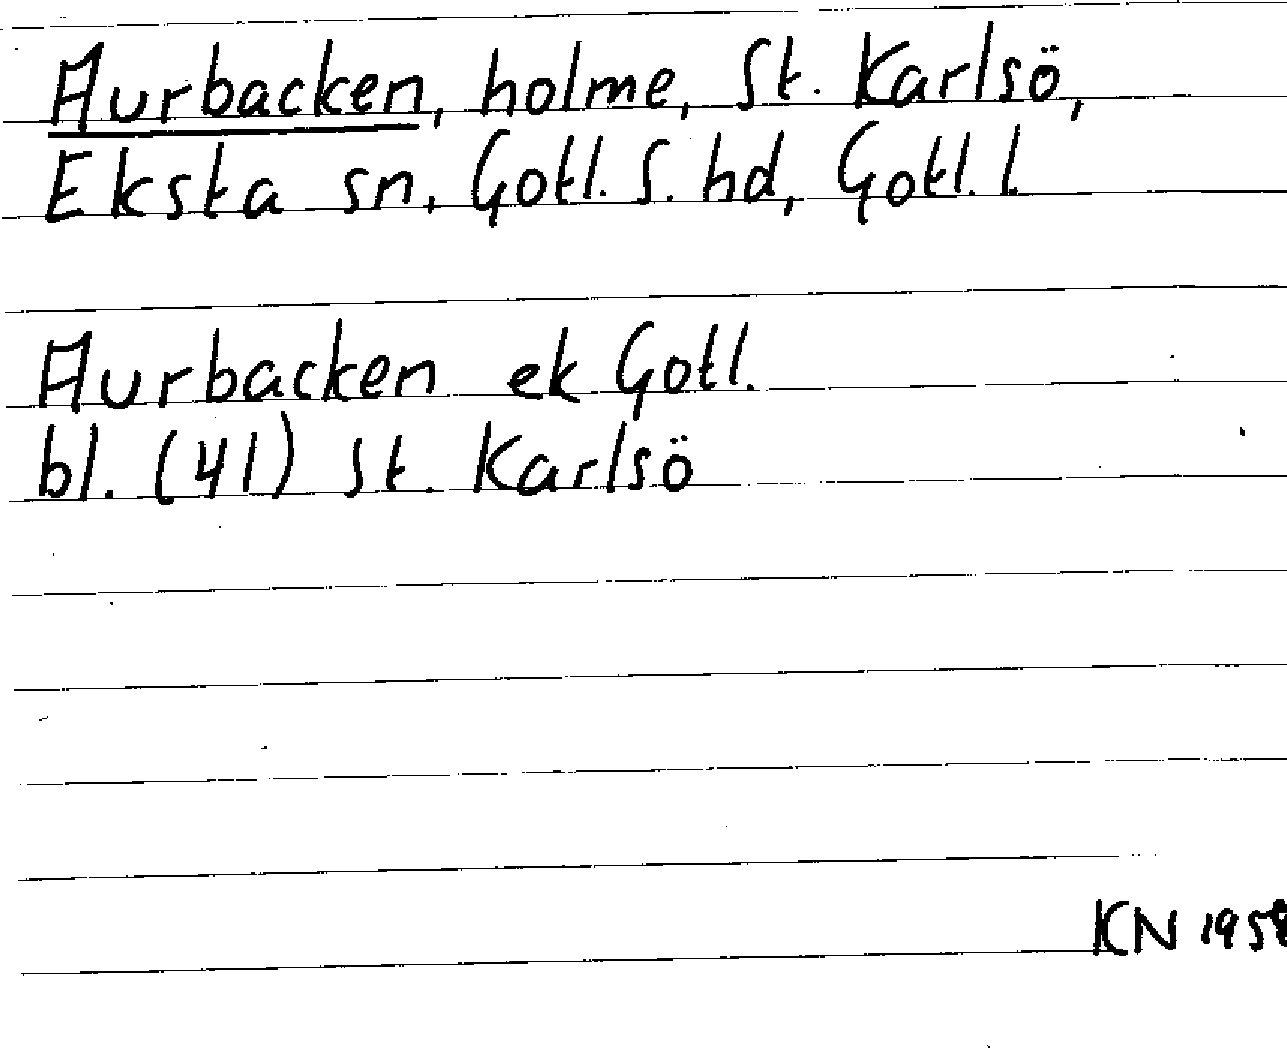 Aurbacken, holme, St. Karlsö,
Eksta sn, Gotl. S. hd, Gotl. l
Aurbacken ek Gotl.
bl. (41) St. Karlsö
KN 1958